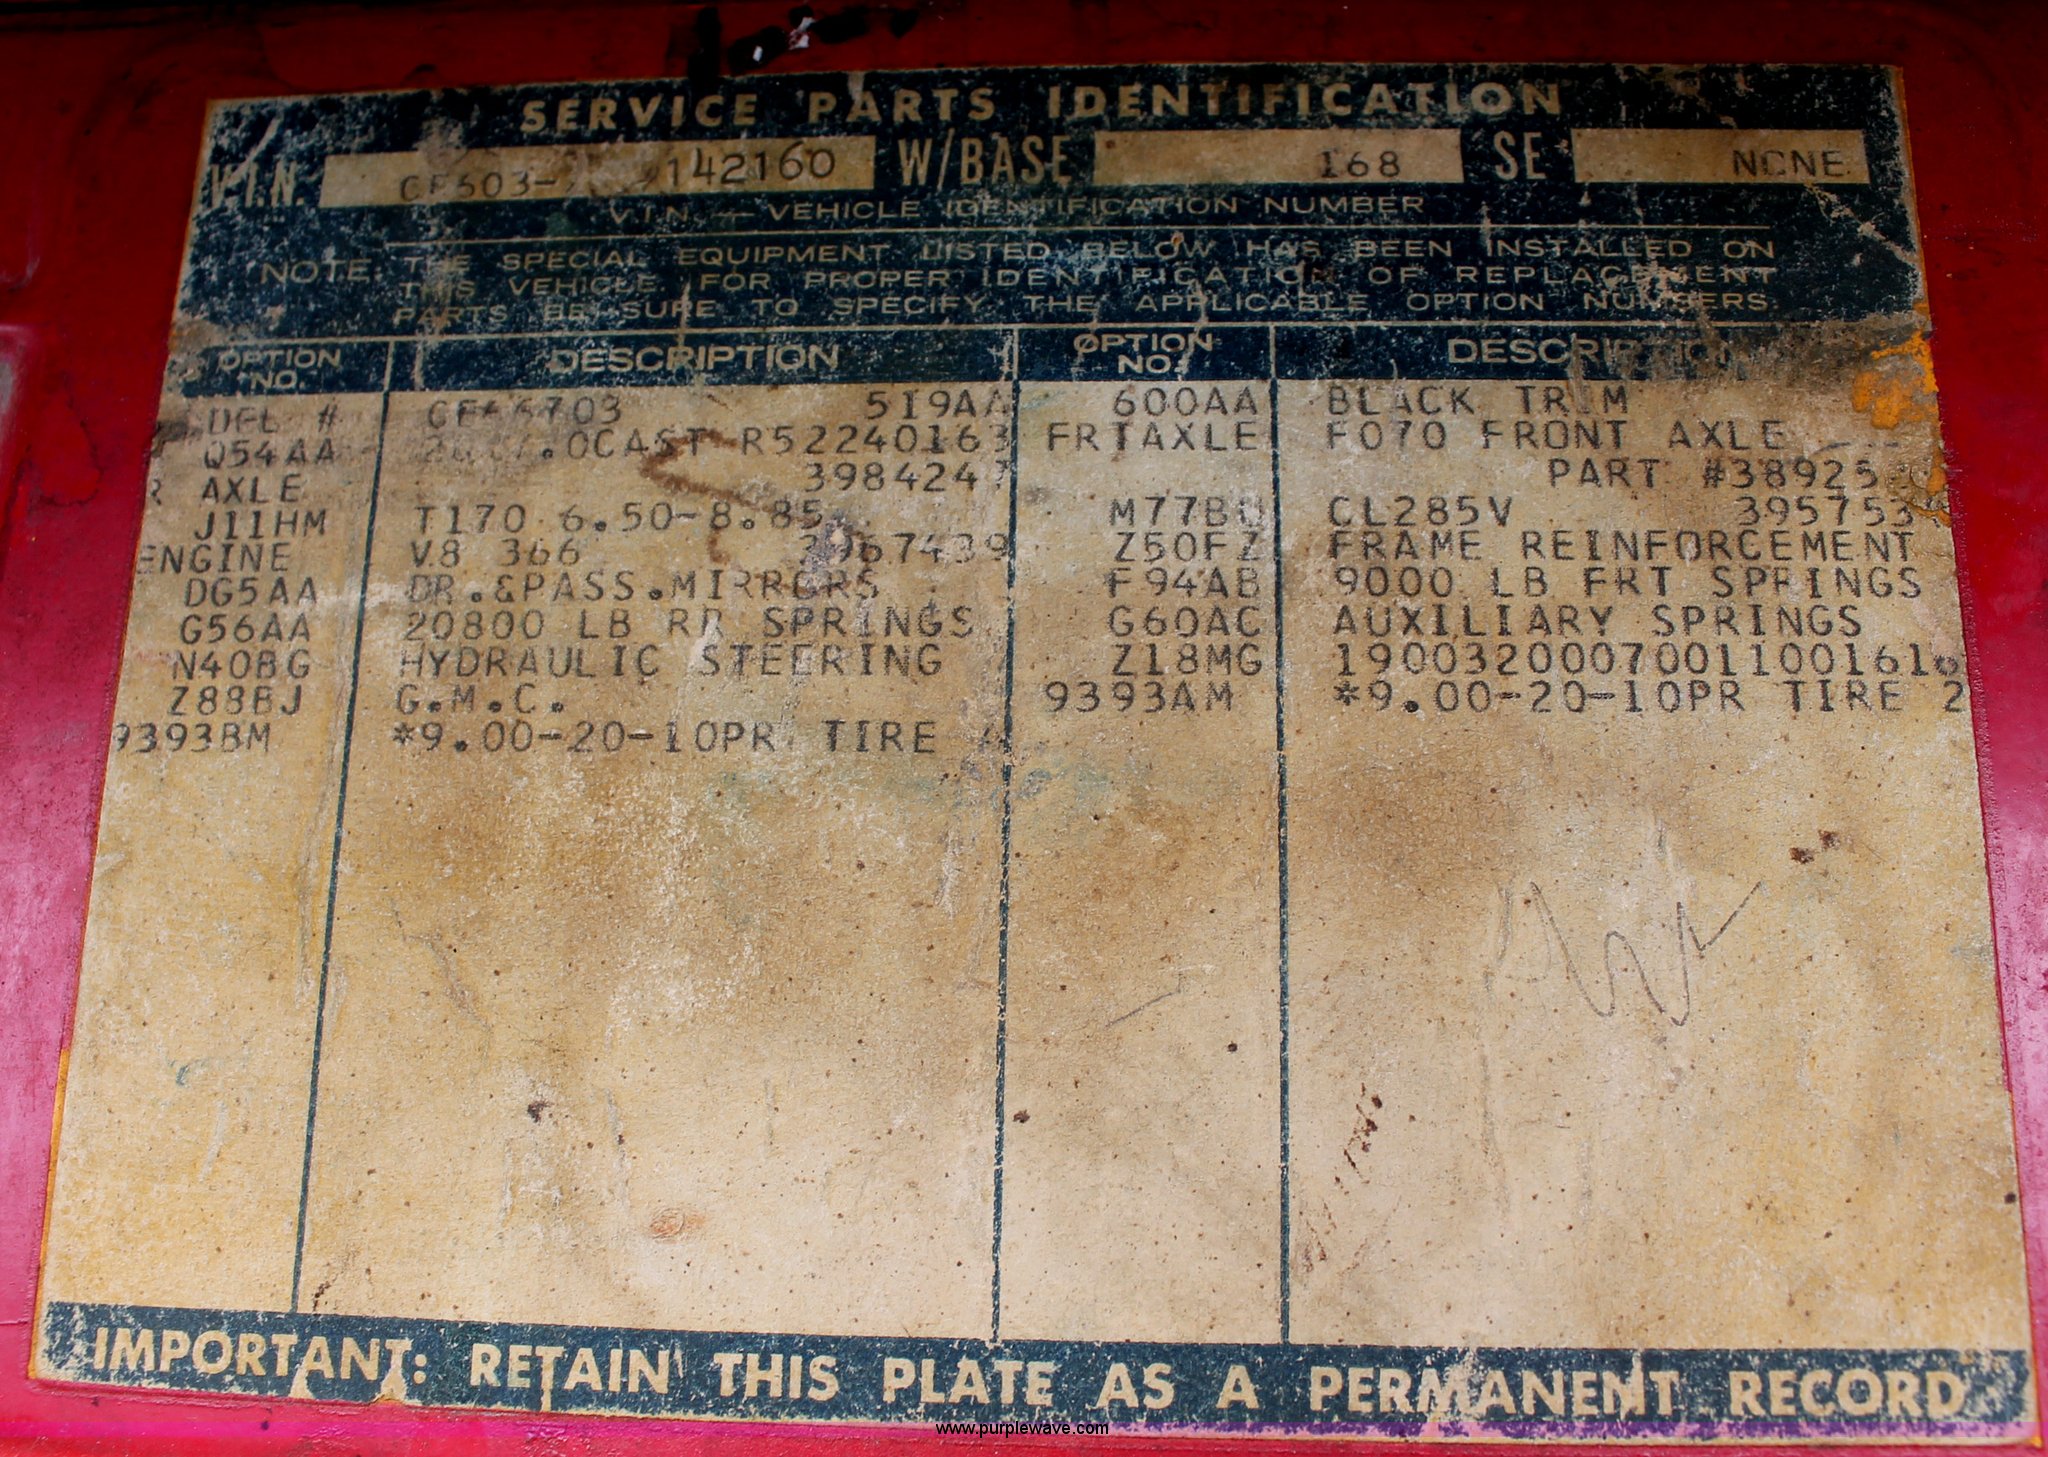 SERVICE PARTS IDENTIFICATION
V.I.N. W/BASE 168 SE NONE
V.I.N. — VEHICLE IDENTIFICATION NUMBER
NOTE: THE SPECIAL EQUIPMENT LISTED BELOW HAS BEEN INSTALLED ON
THIS VEHICLE. FOR PROPER IDENTIFICATION OF REPLACEMENT
PARTS BE SURE TO SPECIFY THE APPLICABLE OPTION NUMBERS.
OPTION NO. DESCRIPTION OPTION NO. DESCRIPTION
DEL # 519AA 600AA BLACK TRIM
Q54AA R52240163 FRTAXLE F070 FRONT AXLE
R AXLE 3984247 PART #38925
J11HM T170 6.50-8.85 CL285V 395753
ENGINE V8 366 3967439 Z50FZ FRAME REINFORCEMENT
DG5AA DR.&PASS.MIRRORS F94AB 9000 LB FRT SPRINGS
G56AA 20800 LB RR SPRINGS G60AC AUXILIARY SPRINGS
N40BG HYDRAULIC STEERING Z18MG
Z88BJ G.M.C. 9393AM *9.00-20-10PR TIRE 2
9393BM *9.00-20-10PR TIRE
IMPORTANT: RETAIN THIS PLATE AS A PERMANENT RECORD
www.purplewave.com